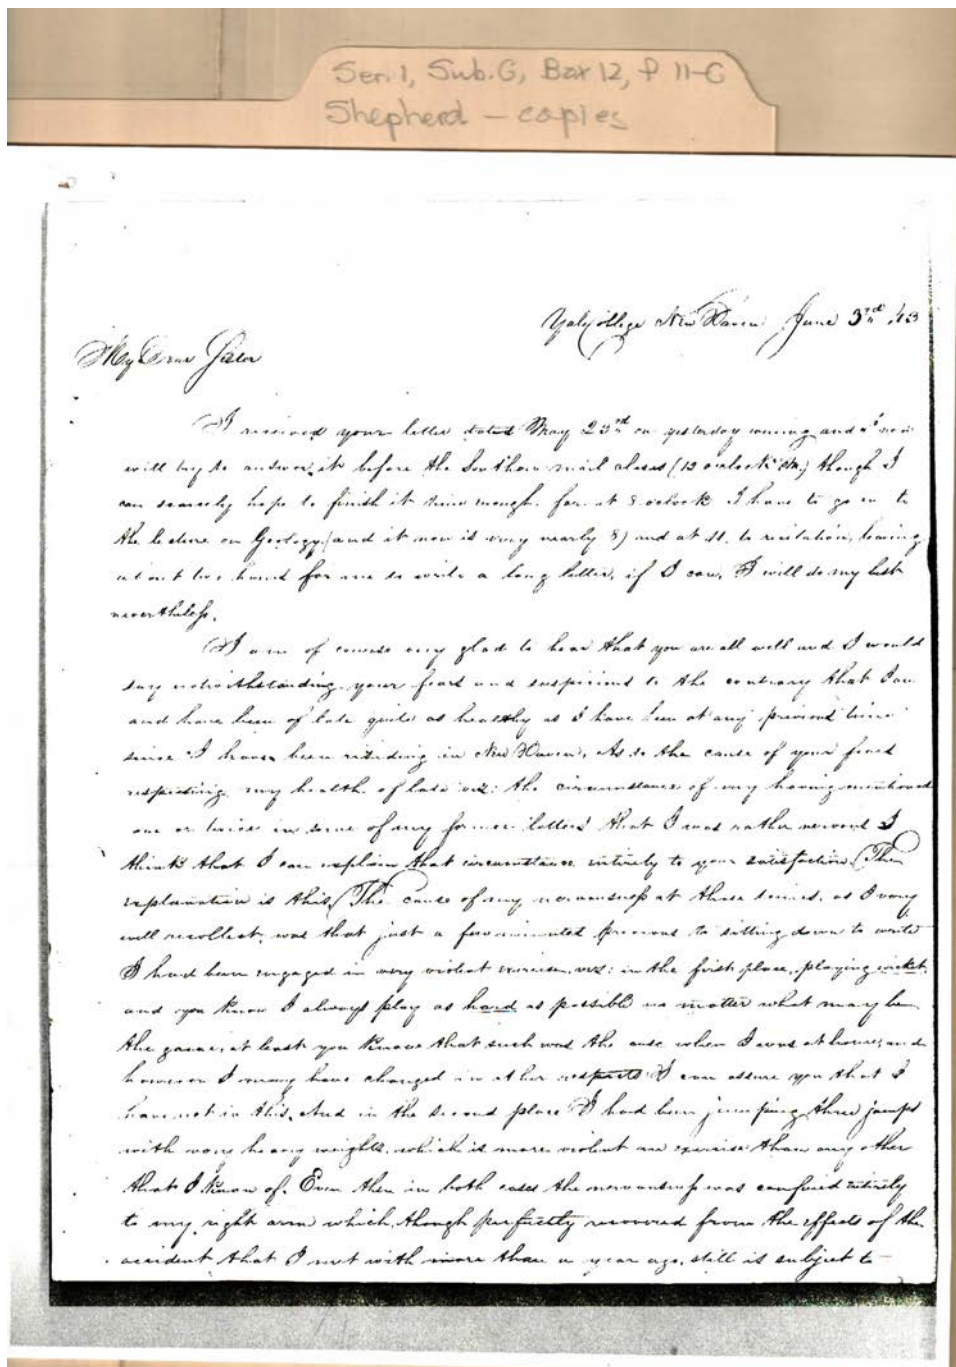 Ser. 1, Sub. G, Box 12, P 11-C
Shepherd – copies
Yale College New Haven June 3rd, 43
My Dear Sister
I received your letter dated May 23rd on yesterday evening and now
will try to answer it before the Southern mail closes (12 o'clock M.) though I
can scarcely hope to finish it time enough for at 8 o'clock I have to go in to
the lecture on Geology (and it now is very nearly 8) and at 11 to recitation, leaving
about two hours for me to write a long letter, if I can, I will do my best
nevertheless.
I am of course very glad to hear that you are all well and I would
say notwithstanding your fears and suspicions to the contrary that I am
and have been of late quite as healthy as I have been at any previous time
since I have been residing in New Haven. As to the cause of your fears
respecting my health of late viz: the circumstance of my having mentioned
one or twice in some of my former letters that I was rather nervous I
think that I can explain that circumstance entirely to your satisfaction. The
explanation is this. The cause of my nervousness at those times, as I very
well recollect, was that just a few minutes previous to sitting down to write
I had been engaged in very violent exercise, viz: in the first place, playing wicket
and you know I always play as hard as possible no matter what may be
the game, at least you know that such was the case when I was at home, and
however I may have changed in other respects I can assure you that I
have not in this. And in the second place I had been jumping three jumps
with very heavy weights, which is more violent an exercise than any other
that I know of. Even then in both cases the nervousness was confined entirely
to my right arm which, though perfectly recovered from the effects of the
accident that I met with more than a year ago, still is subject to